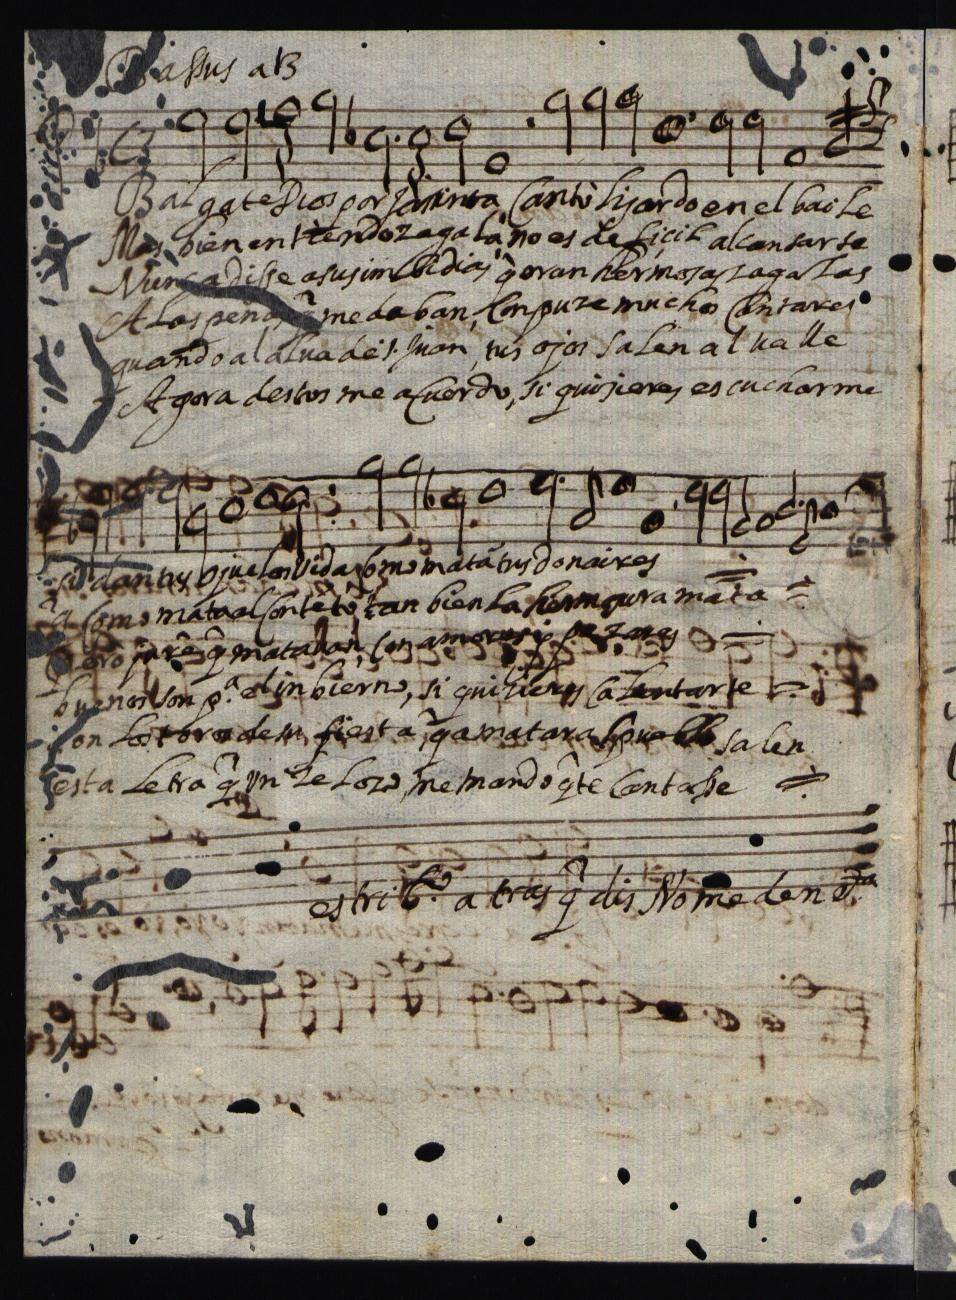 Bassus a 3
Balgate Dios por Jasinta Canto lisardo en el baile
Mas bien entiendo zagala no es de ficil alcansarte
Nunca disse a susimbidias q̃ eran hermozas zagalas
A las penas q̃ me daban, Conpuze mucho Cantares
quando al alua de S. Juan, tus ojos salen al ualle
Agora destos me acuerdo, si quisieres escucharme
dan tus ojuelos vida como mata tus donaires
Como mata al Contẽto tan bien la hermosura mata
Pero q̃ mataban, Con amores pezares
buenos son pª. el inbierno, si quizieres Calentarte
Con los toros de su fiesta, q̃ a matar al salen
esta letra q̃ un zelozo, me mando q̃ te Cantasse
estribº. a tras q̃ dis No me den